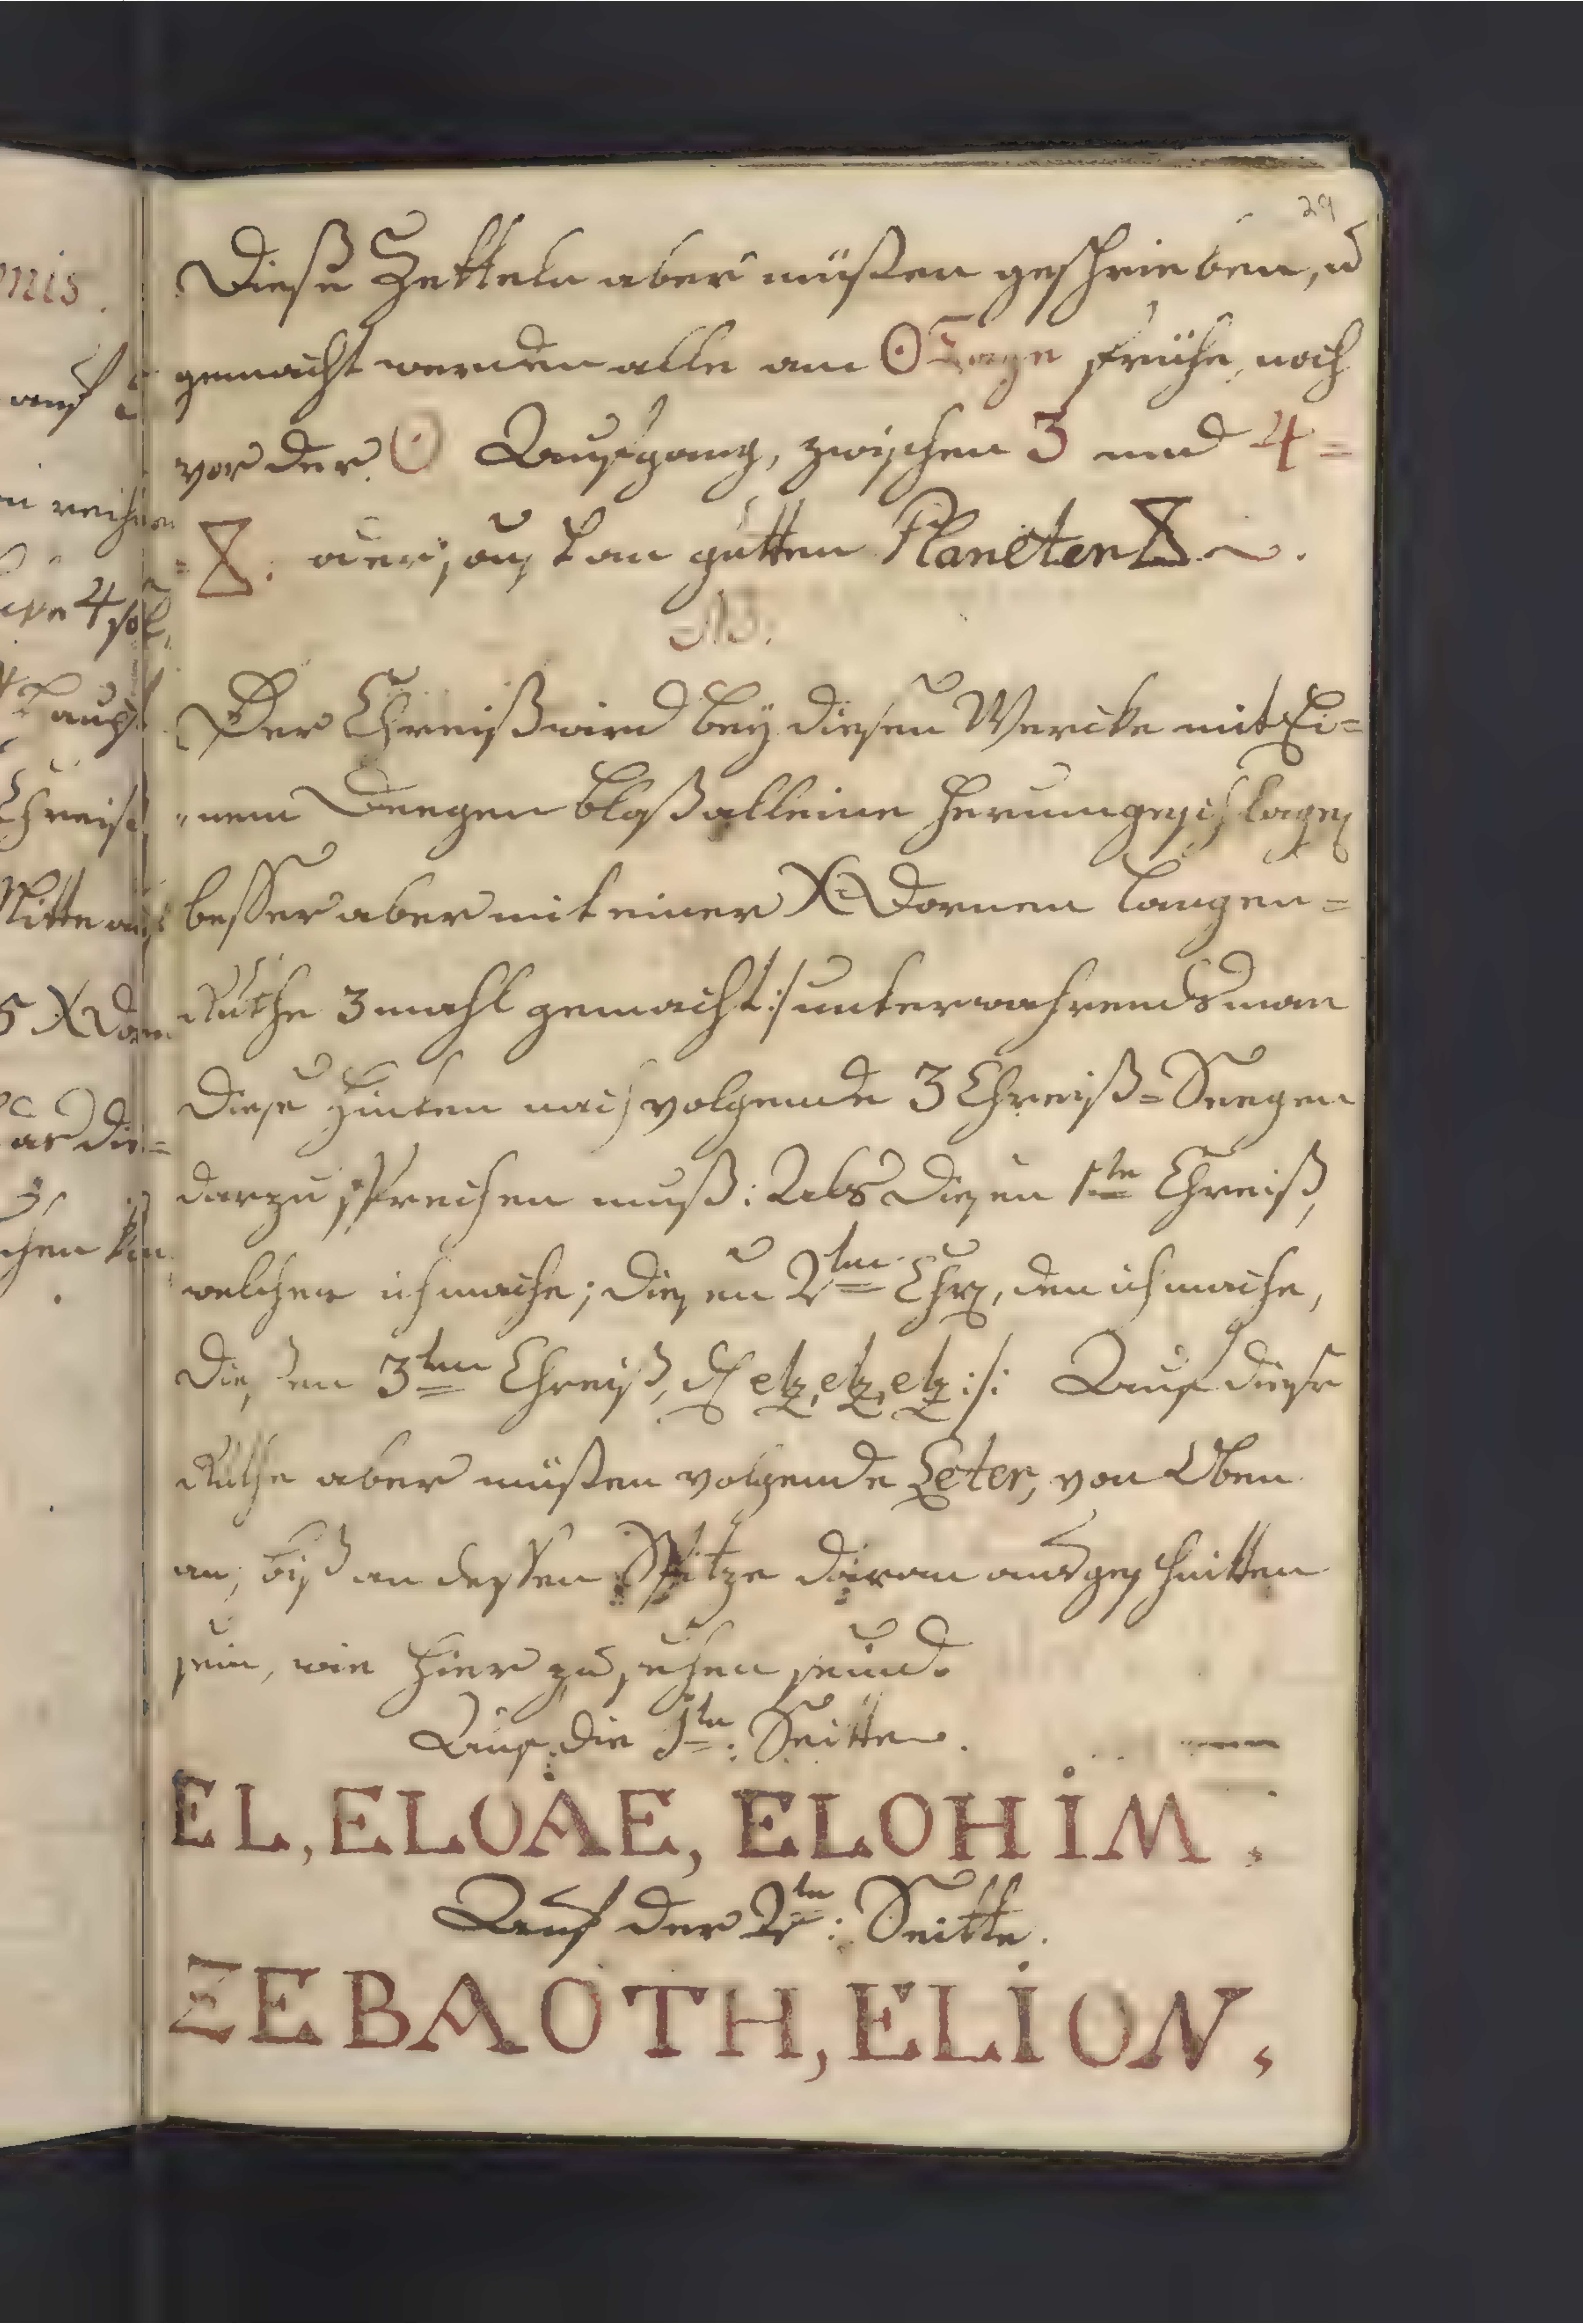 29
Diese Zetteln aber müßen geschrieben, u
gemacht werden alle am ☉ Tage frühe, noch
vor der ☉ Aufgang, zwischen 3 und 4 =
= ⧖. oder sonst an gutten Planeten ⧖ ~.
NB.
Der Chreiß wird bey diesen Wercke mit Ei=
"nem Deegen bloß alleine herumgeschlagen
besser aber mit einer X Dornen langen =
Ruthe 3 mahl gemacht :/ unterwahrends man
diese hinten nach volgende 3 Chreiß = Seegen
darzu sprechen muß: Als diesen 1te Chreiß,
welchen ich mache; diesen 2ten Chr, den ich mache,
diesen 3ten Chreiß, etz, etz, etz :/: Auf dieser
Ruthe aber müßen volgende Leter, von Oben
an, biß an dessen Spitze daran ausgeschnitten
sein, wie hier zu sehen seind.
Auf die 1te: Seitten.
EL, ELOAE, ELOHIM.
Auf der 2te: Seitte.
ZEBAOTH, ELION,